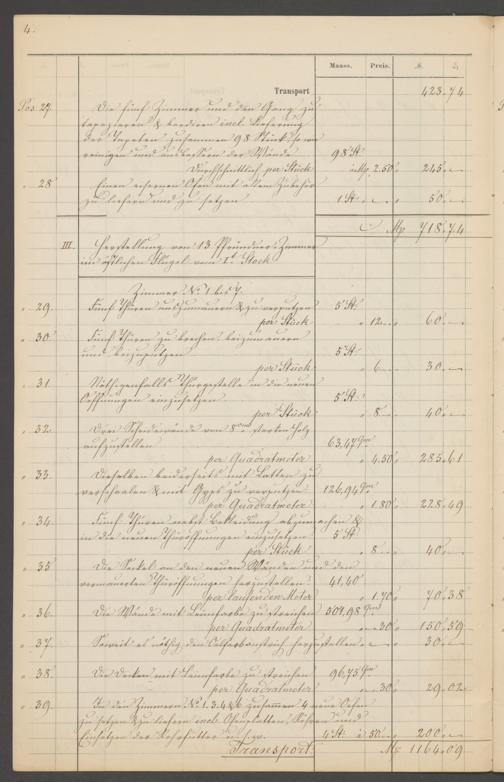 4.
Maass. Preis. M. ₰
Transport 423.74
Pos. 27. Die fünf Zimmer und den Gang zu
tapezieren & bordiren incl. Lieferung
der Tapeten zusammen 98 Stück, so wie
reinigen und ausbessern der Wände 98 St.
Durchschnittlich per Stück à M. 2.50 245.—
" 28 Einen eisernen Ofen mit allem Zubehör
zu liefern und zu setzen 1 St. 50.—
M. 718.74
III. Herstellung von 13 Pfründner Zimmer
im östlichen Flügel vom I. Stock
Zimmer No. 1 bis 7.
" 29. Fünf Thüren auszumauern & zu verputzen 5 St.
per Stück " 12.— 60.—
" 30. Fünf Thüren zu brechen beizumauern
und beizuputzen 5 St.
per Stück " 6.— 30.—
" 31. Nöthigenfalls Thürgestelle in die neuen
Oeffnungen einzusetzen 5 St.
per Stück " 8.— 40.—
" 32. Drei Scheidewände von starken Holz
aufzustellen 63,47
per Quadratmeter " 4.50 285.61
" 33. Dieselben beiderseits mit Latten zu
verschaalen & mit Gyps zu verputzen 126,94
per Quadratmeter " 1.80 228.49
" 34. Fünf Thüren nebst Bekleidung abzumachen &
in die neuen Thüröffnungen einzusetzen 5 St.
per Stück " 8.— 40.—
" 35. Die Sockel an den neuen Wänden und den
vermauerten Thüröffnungen herzustellen 41,40
per laufenden Meter " 1.70 70.38
" 36. Die Wände mit Leimfarbe zu streichen 501,98
per Quadratmeter " 30 150.59
" 37. Soweit es nöthig den Oelfarbanstrich herzustellen 30.—
" 38. Die Decken mit Leimfarbe zu streichen 96,75
per Quadratmeter " 30 29.02
" 39. In den Zimmern No. 1. 3. 4 & 6 zusammen 4 neue Oefen
zu setzen & zu liefern incl. Ofenplatten, Rohre und
Einsetzen der u.s.w. 4 St. à 50.— 200.—
Transport M. 1164.09